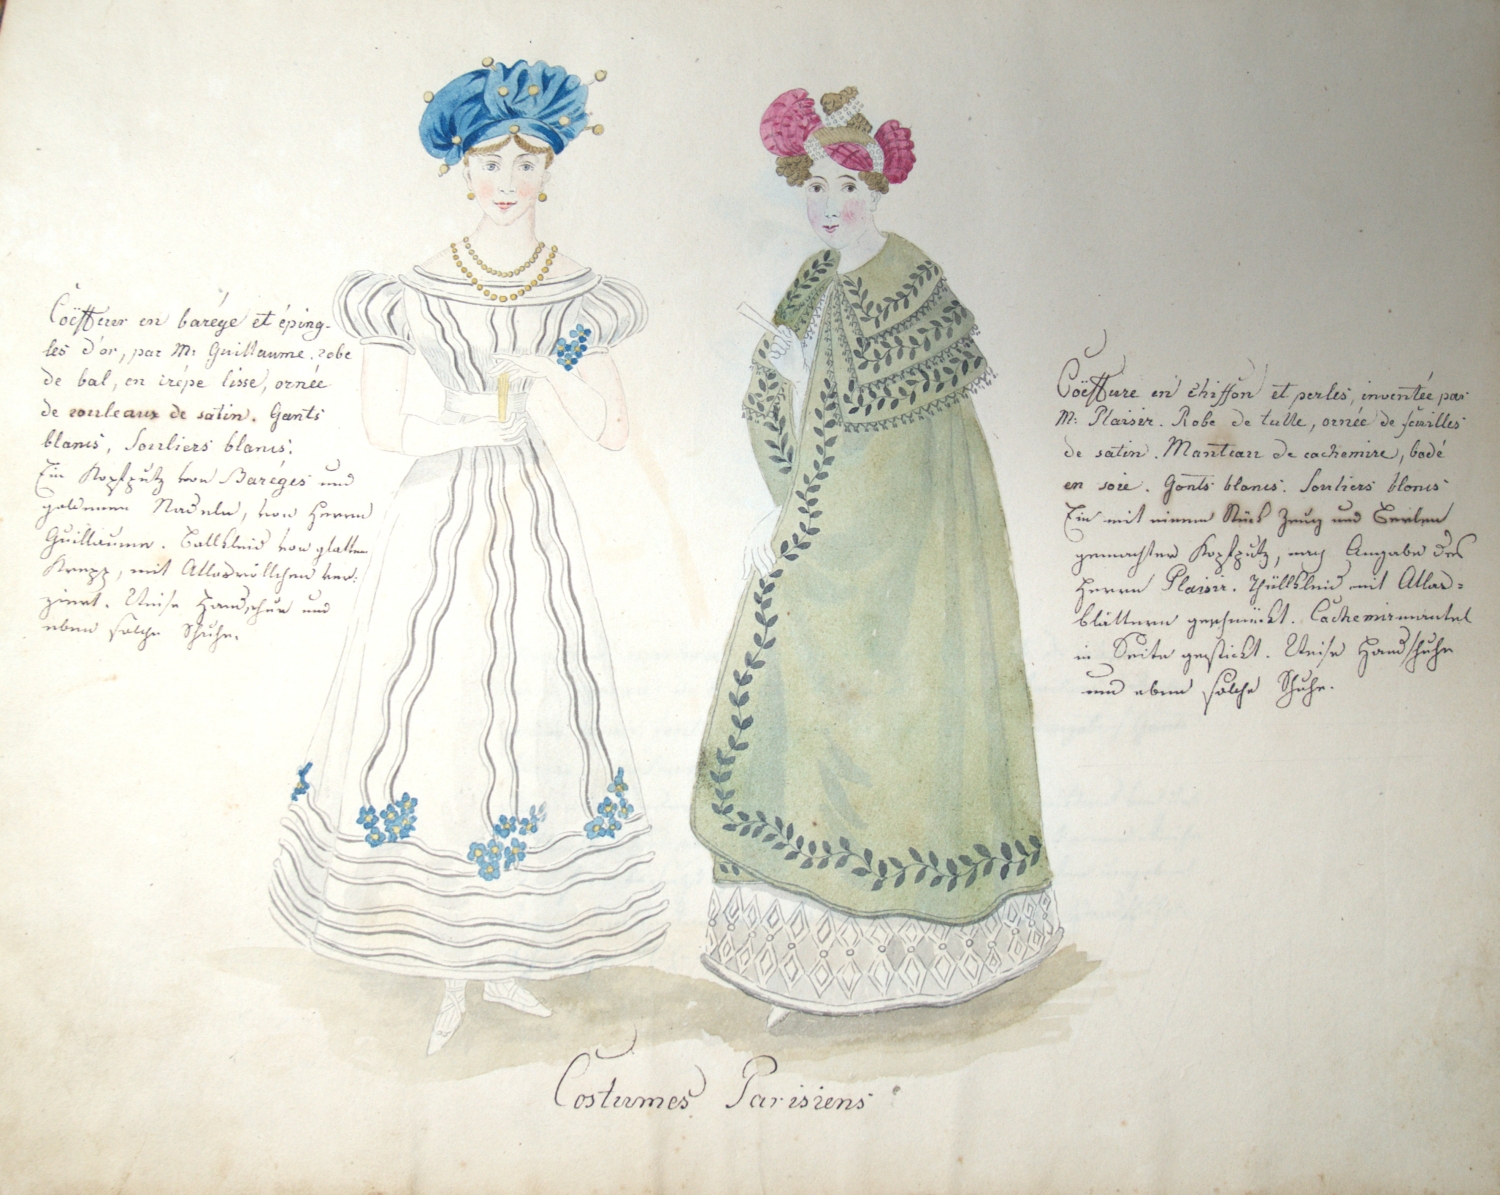 Coëffeur en barége et éping-
les d'or, par Mr: Guillaume. robe
de bal, en irépe lisse, ornée
de rouleaux de satin. Gants
blancs, Souliers blancs:
Ein Kopfputz von Baréges und
goldenen Nadeln, von Herrn
Guillaume. Ballkleid von glatten
Krepp, mit Atlasröllchen ver:
ziert. Weise Handschue und
eben solche Schuhe.
Coëffure en chiffon et perles, inventée par
Mr: Plaisir. Robe de tulle, ornée de feuilles
de satin. Manteau de cachemire, bodé
en soie. Gants blancs. Souliers blancs
Ein mit einem Stück Zeug und Perlen
gemachter Kopfputz, nach Angabe des
Herrn Plaisir. Thüllkleid mit Atlas=
blättern geschmückt. Cachemirmantel
in Seite gestickt. Weise Handschuhe
und eben solche Schuhe.
Costumes Parisiens